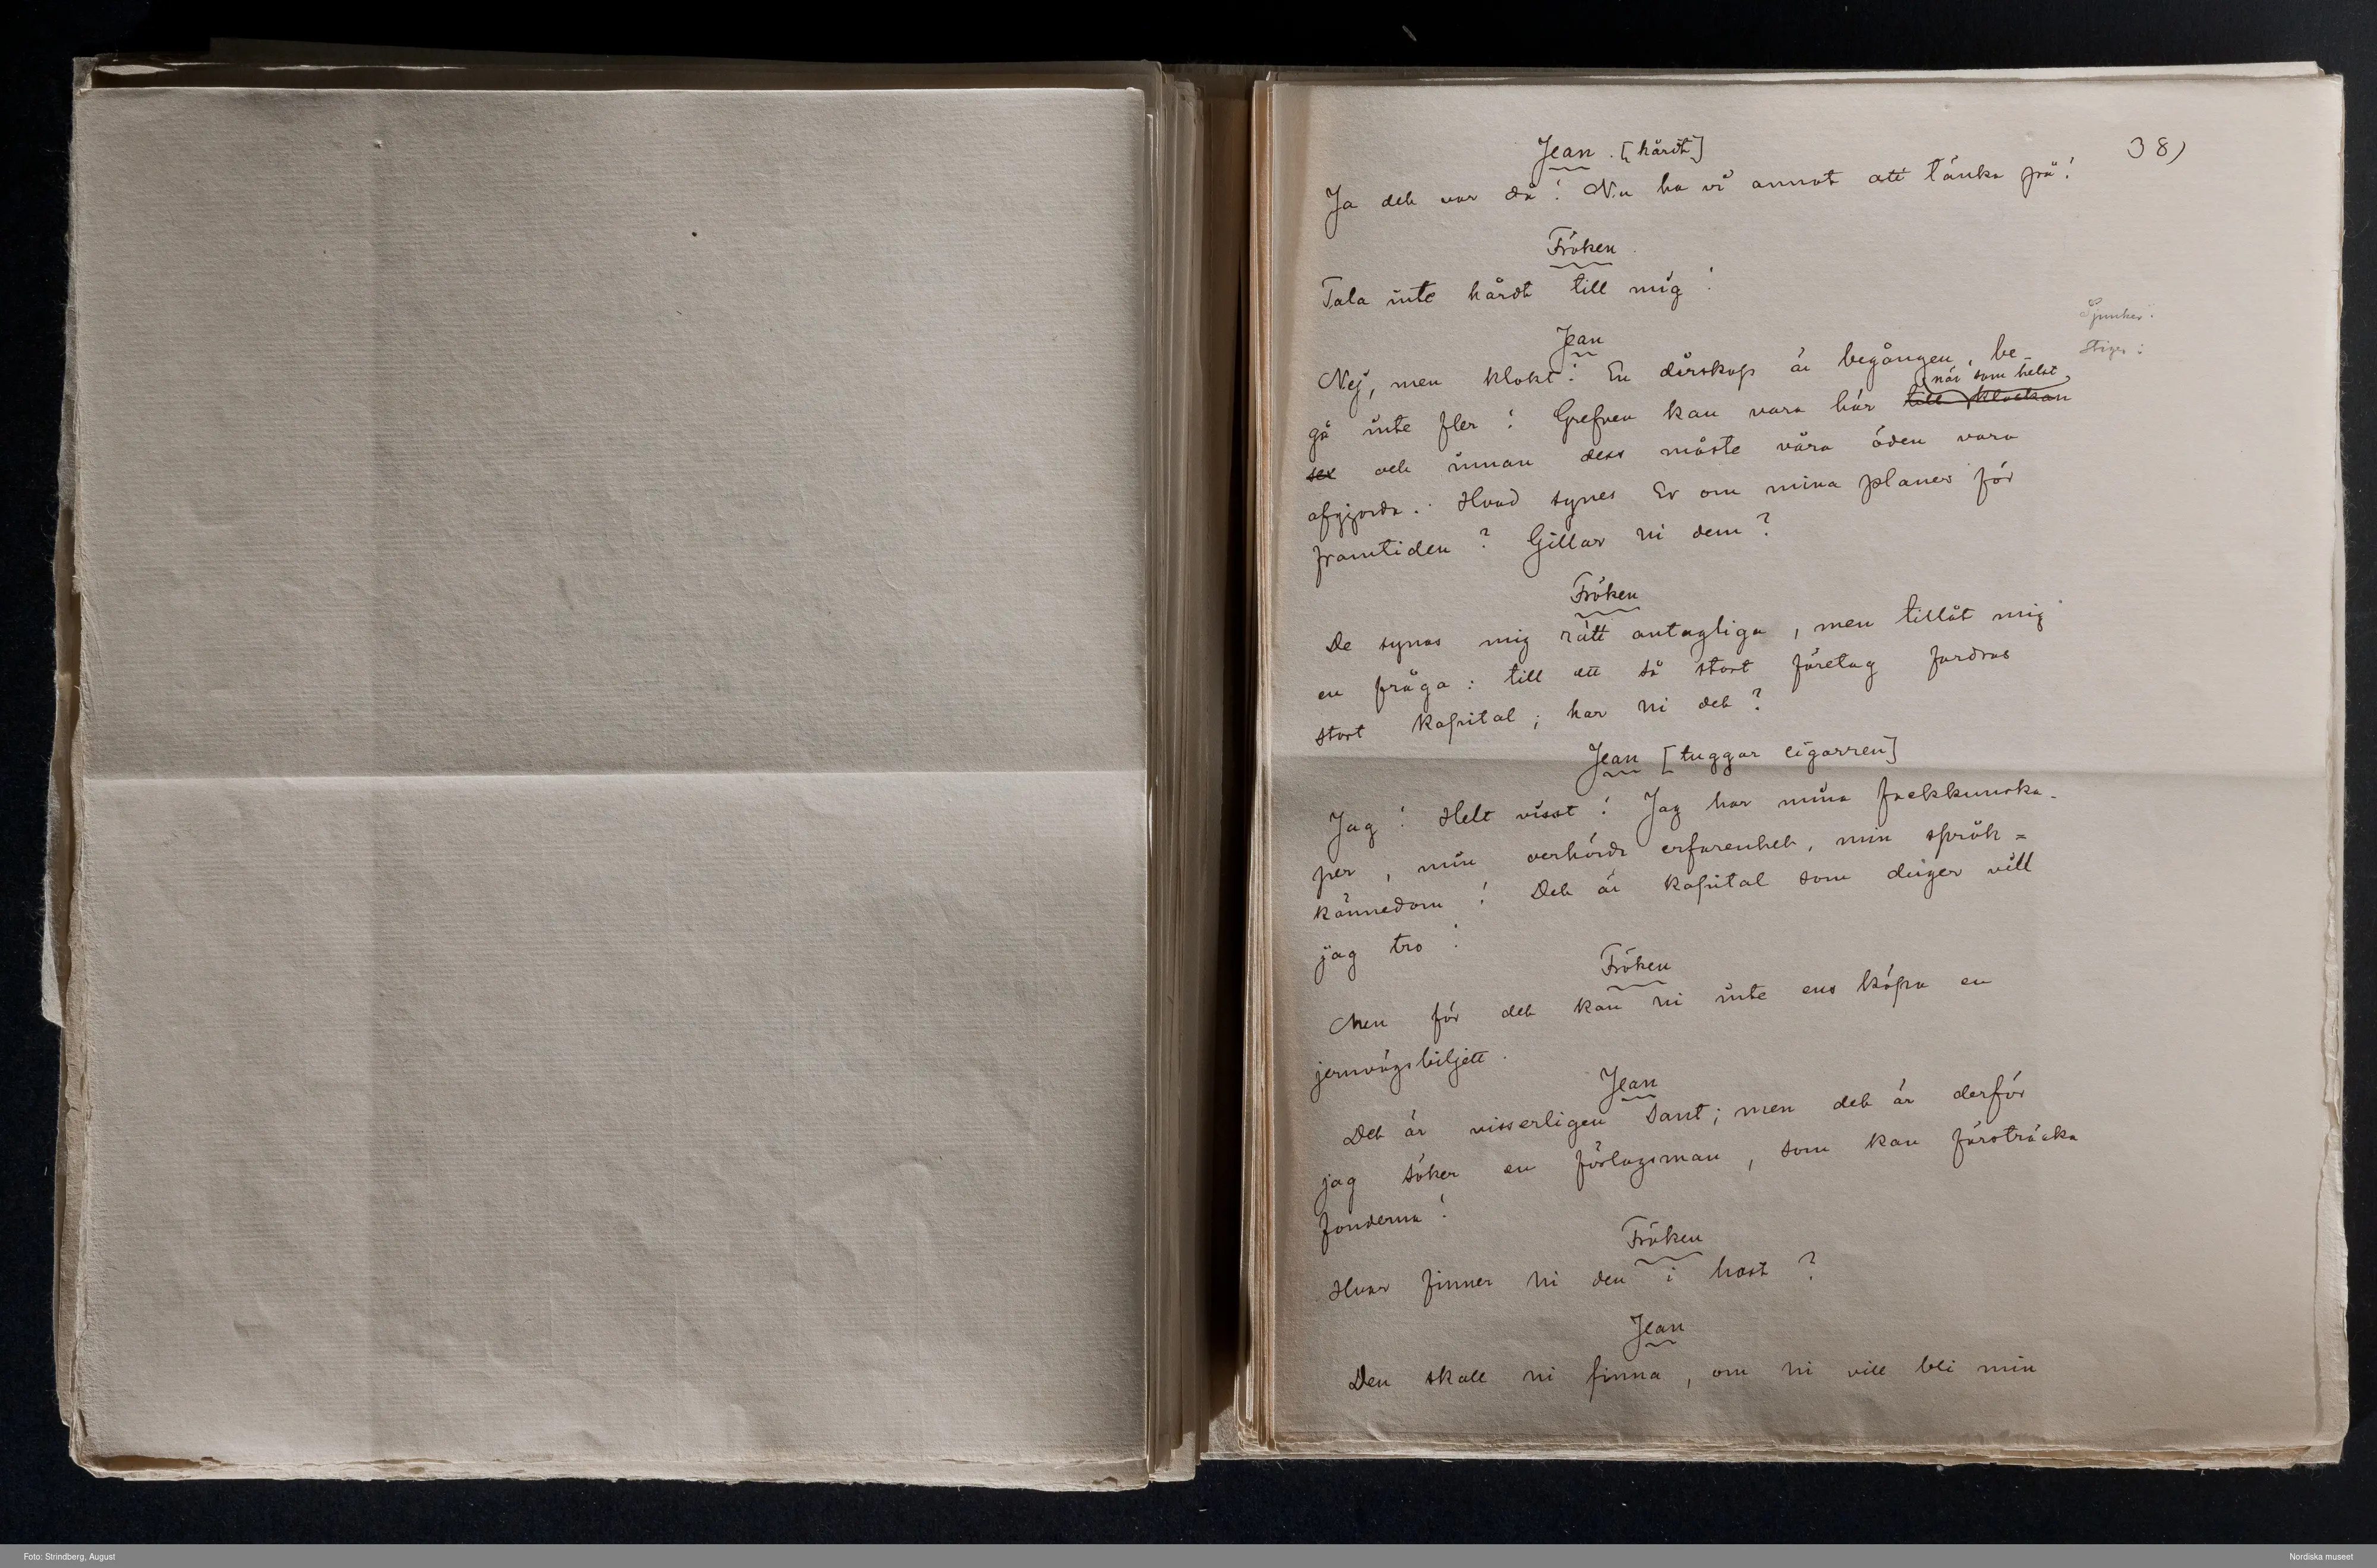 38)
Jean. [hårdt]
Ja det var då! Nu ha vi annat att tänka på!
Fröken.
Tala inte hårdt till mig!
Sjunker.
Stiger:
Jean
Nej, men klokt! En dårskap är begången, be-
när som helst,
gå inte fler! Grefven kan vara här till klockan
sex och innan dess måste våra öden vara
afgjorda. Hvad synes Er om mina planer för
framtiden? Gillar ni dem?
Fröken
De synas mig rätt antagliga, men tillåt mig
en fråga: till ett så stort företag fordras
stort kapital; har ni det?
Jean [tuggar cigarren]
Jag! Helt visst! Jag har mina fackkunska-
per, min oerhörda erfarenhet, min språk=
kännedom! Det är kapital som duger vill
jag tro!
Fröken
Men för det kan ni inte ens köpa en
jernvägsbiljett.
Jean
Det är visserligen sant; men det är derför
jag söker en förlagsman, som kan försträcka
fonderna!
Fröken
Hvar finner ni den i hast?
Jean
Den skall ni finna, om ni vill bli min
Foto: Strindberg, August
Nordiska museet